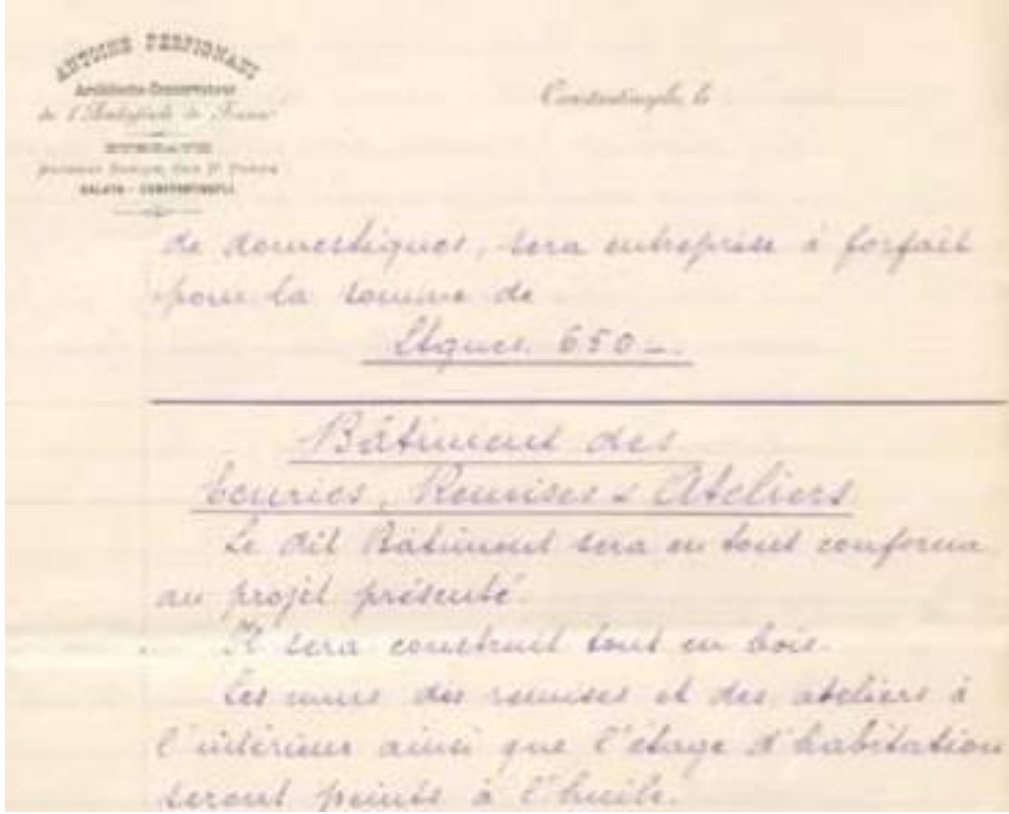 ANTOINE PERPIGNANI
Architecte-Conservateur
de l'Ambassade de France
BUREAUX
GALATA - CONSTANTINOPLE
Constantinople, le
de domestiques, sera entreprise à forfait
pour la somme de
Ltques. 650 -.
Bâtiment des
Écuries, Remises & Ateliers
Le dit Bâtiment sera en tout conforme
au projet présenté.
Il sera construit tout en bois.
Les murs des remises et des ateliers à
l'intérieur ainsi que l'étage d'habitation
seront peints à l'huile.